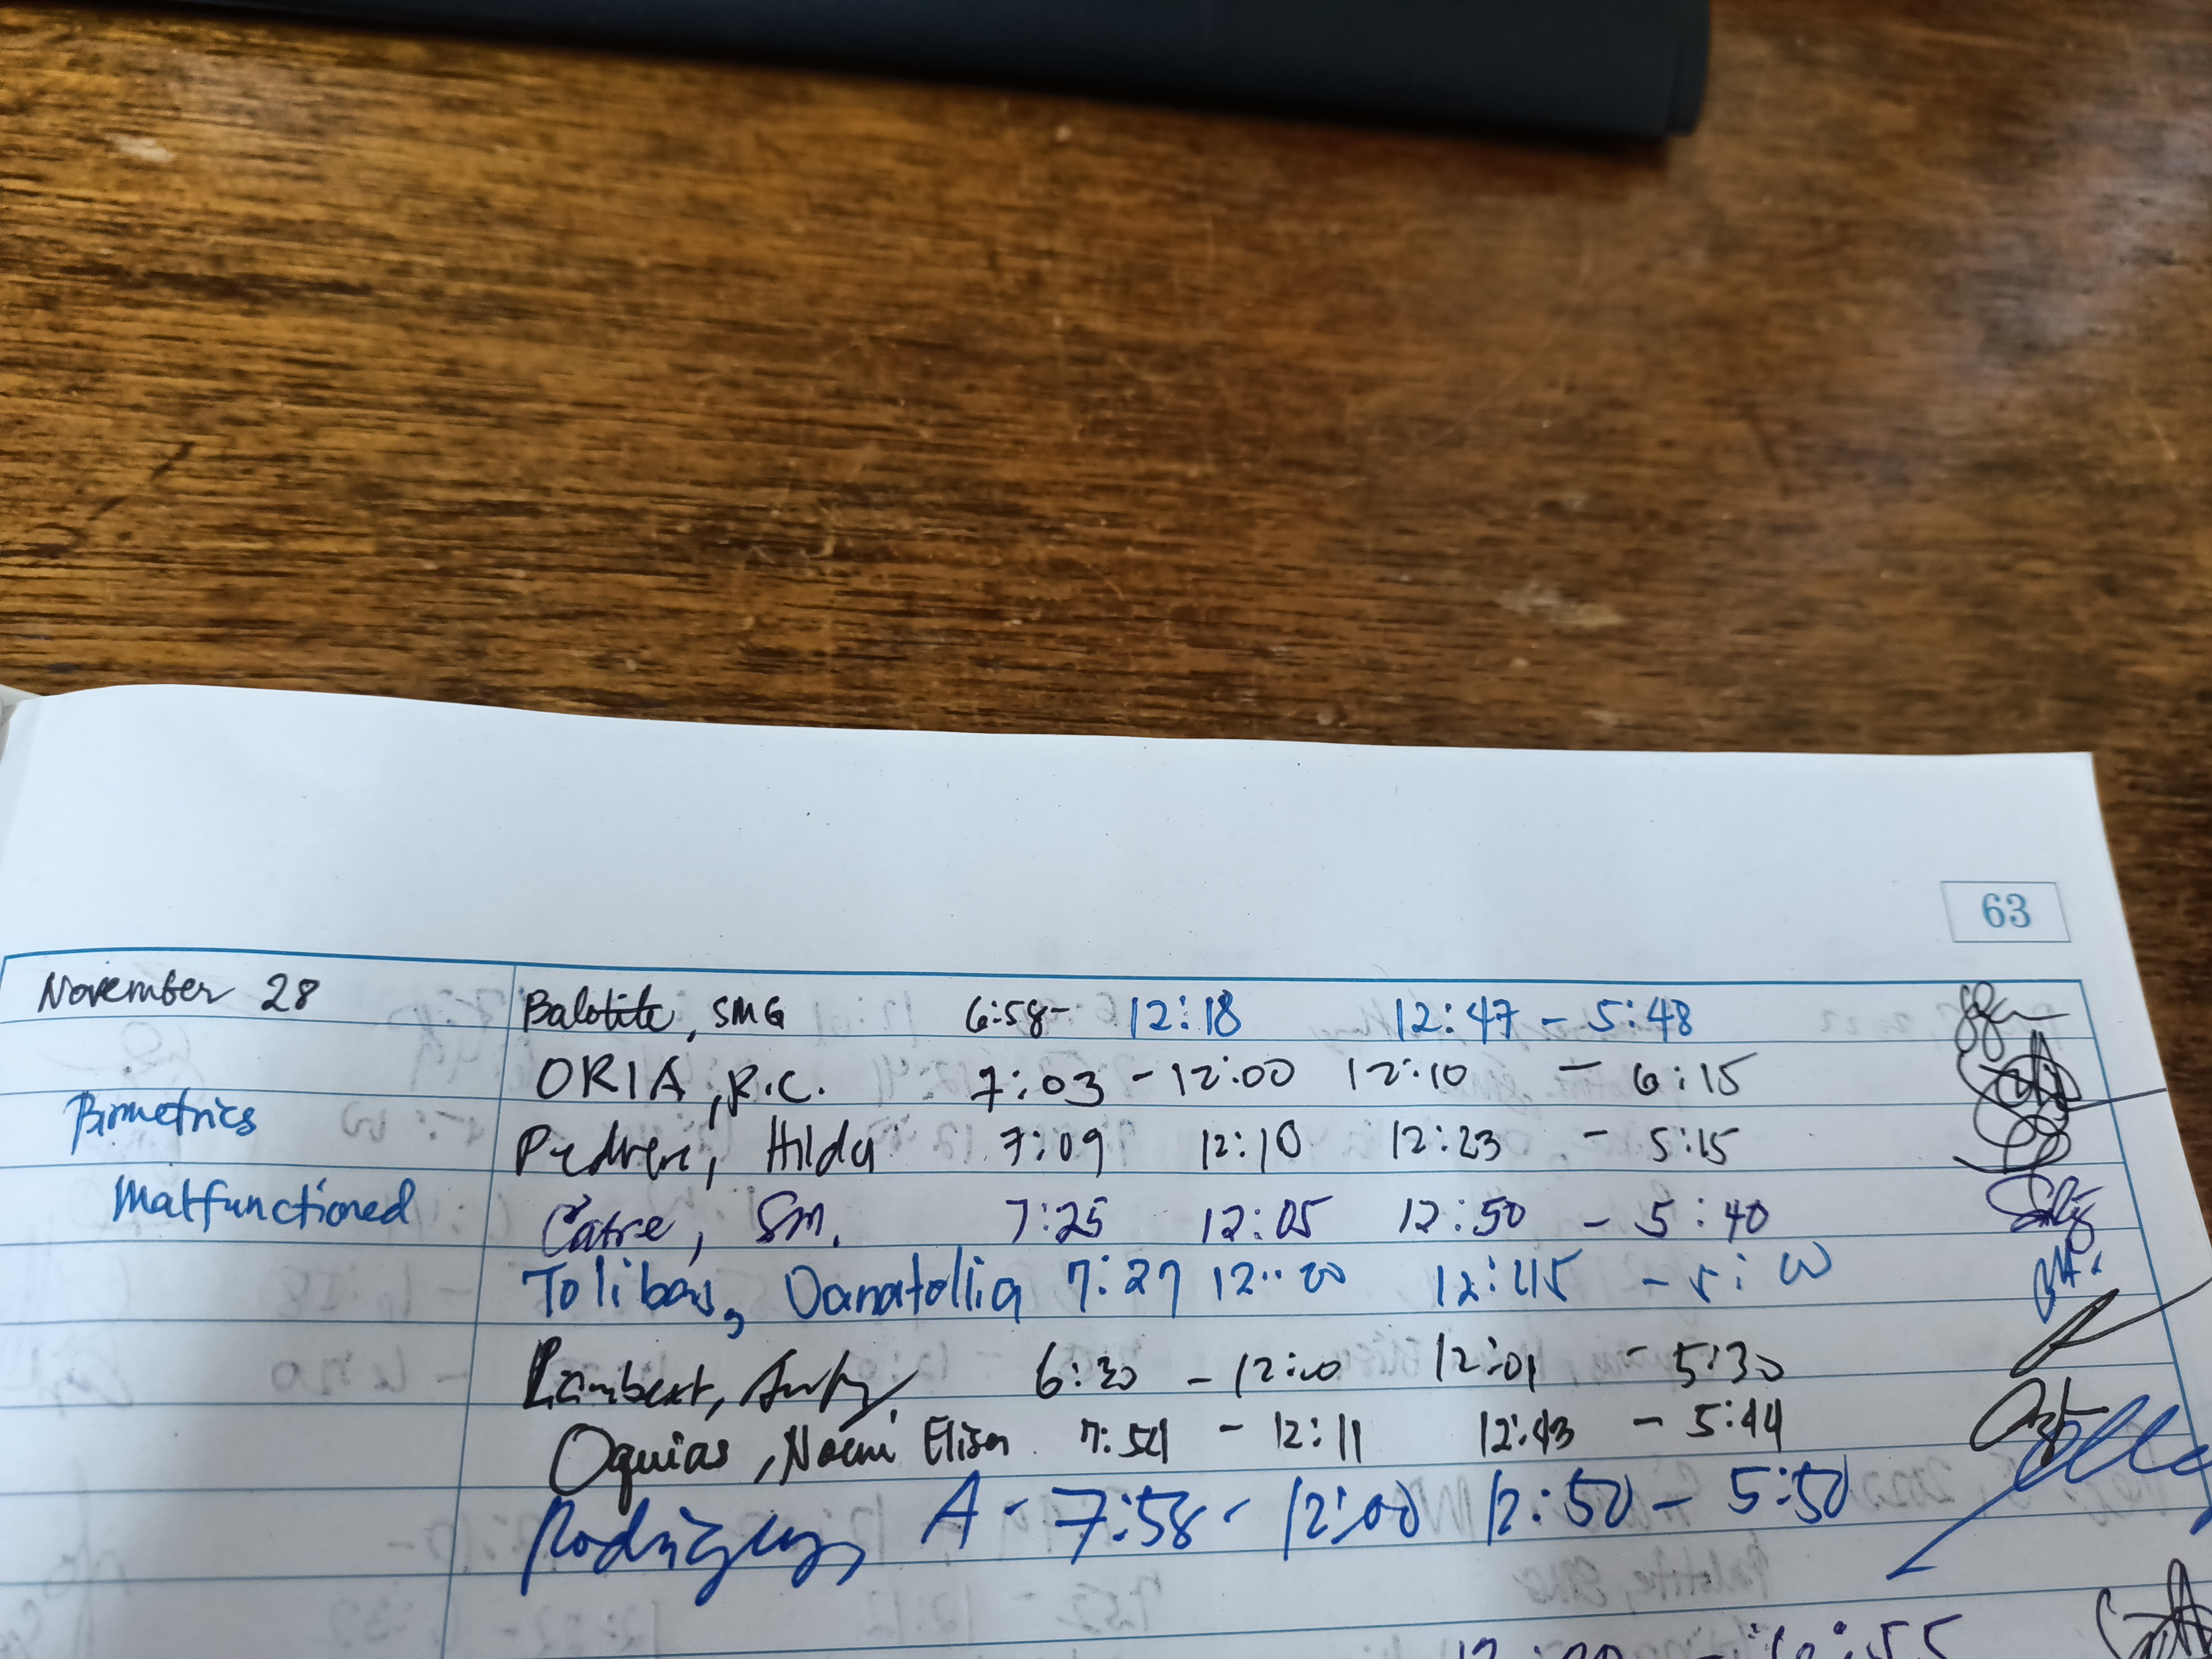 63
November 28 Balotite, SMG 6:58- 12:18 12:47 - 5:48
ORIA, R.C. 7:03 - 12:00 12:10 - 6:15
Biometrics
Hilda 7:09 12:10 12:23 - 5:15
Malfunctioned
Catre, SM. 7:25 12:05 12:50 - 5:40
Tolibas, Danatollia 7:27 12:00 12:45 - 5:00
Lambert, 6:30 - 12:00 12:01 - 5:30
Oquias, Noemi Elisa 7:54 - 12:11 12:43 - 5:44
Rodriguez, A - 7:58 - 12:00 12:50 - 5:50